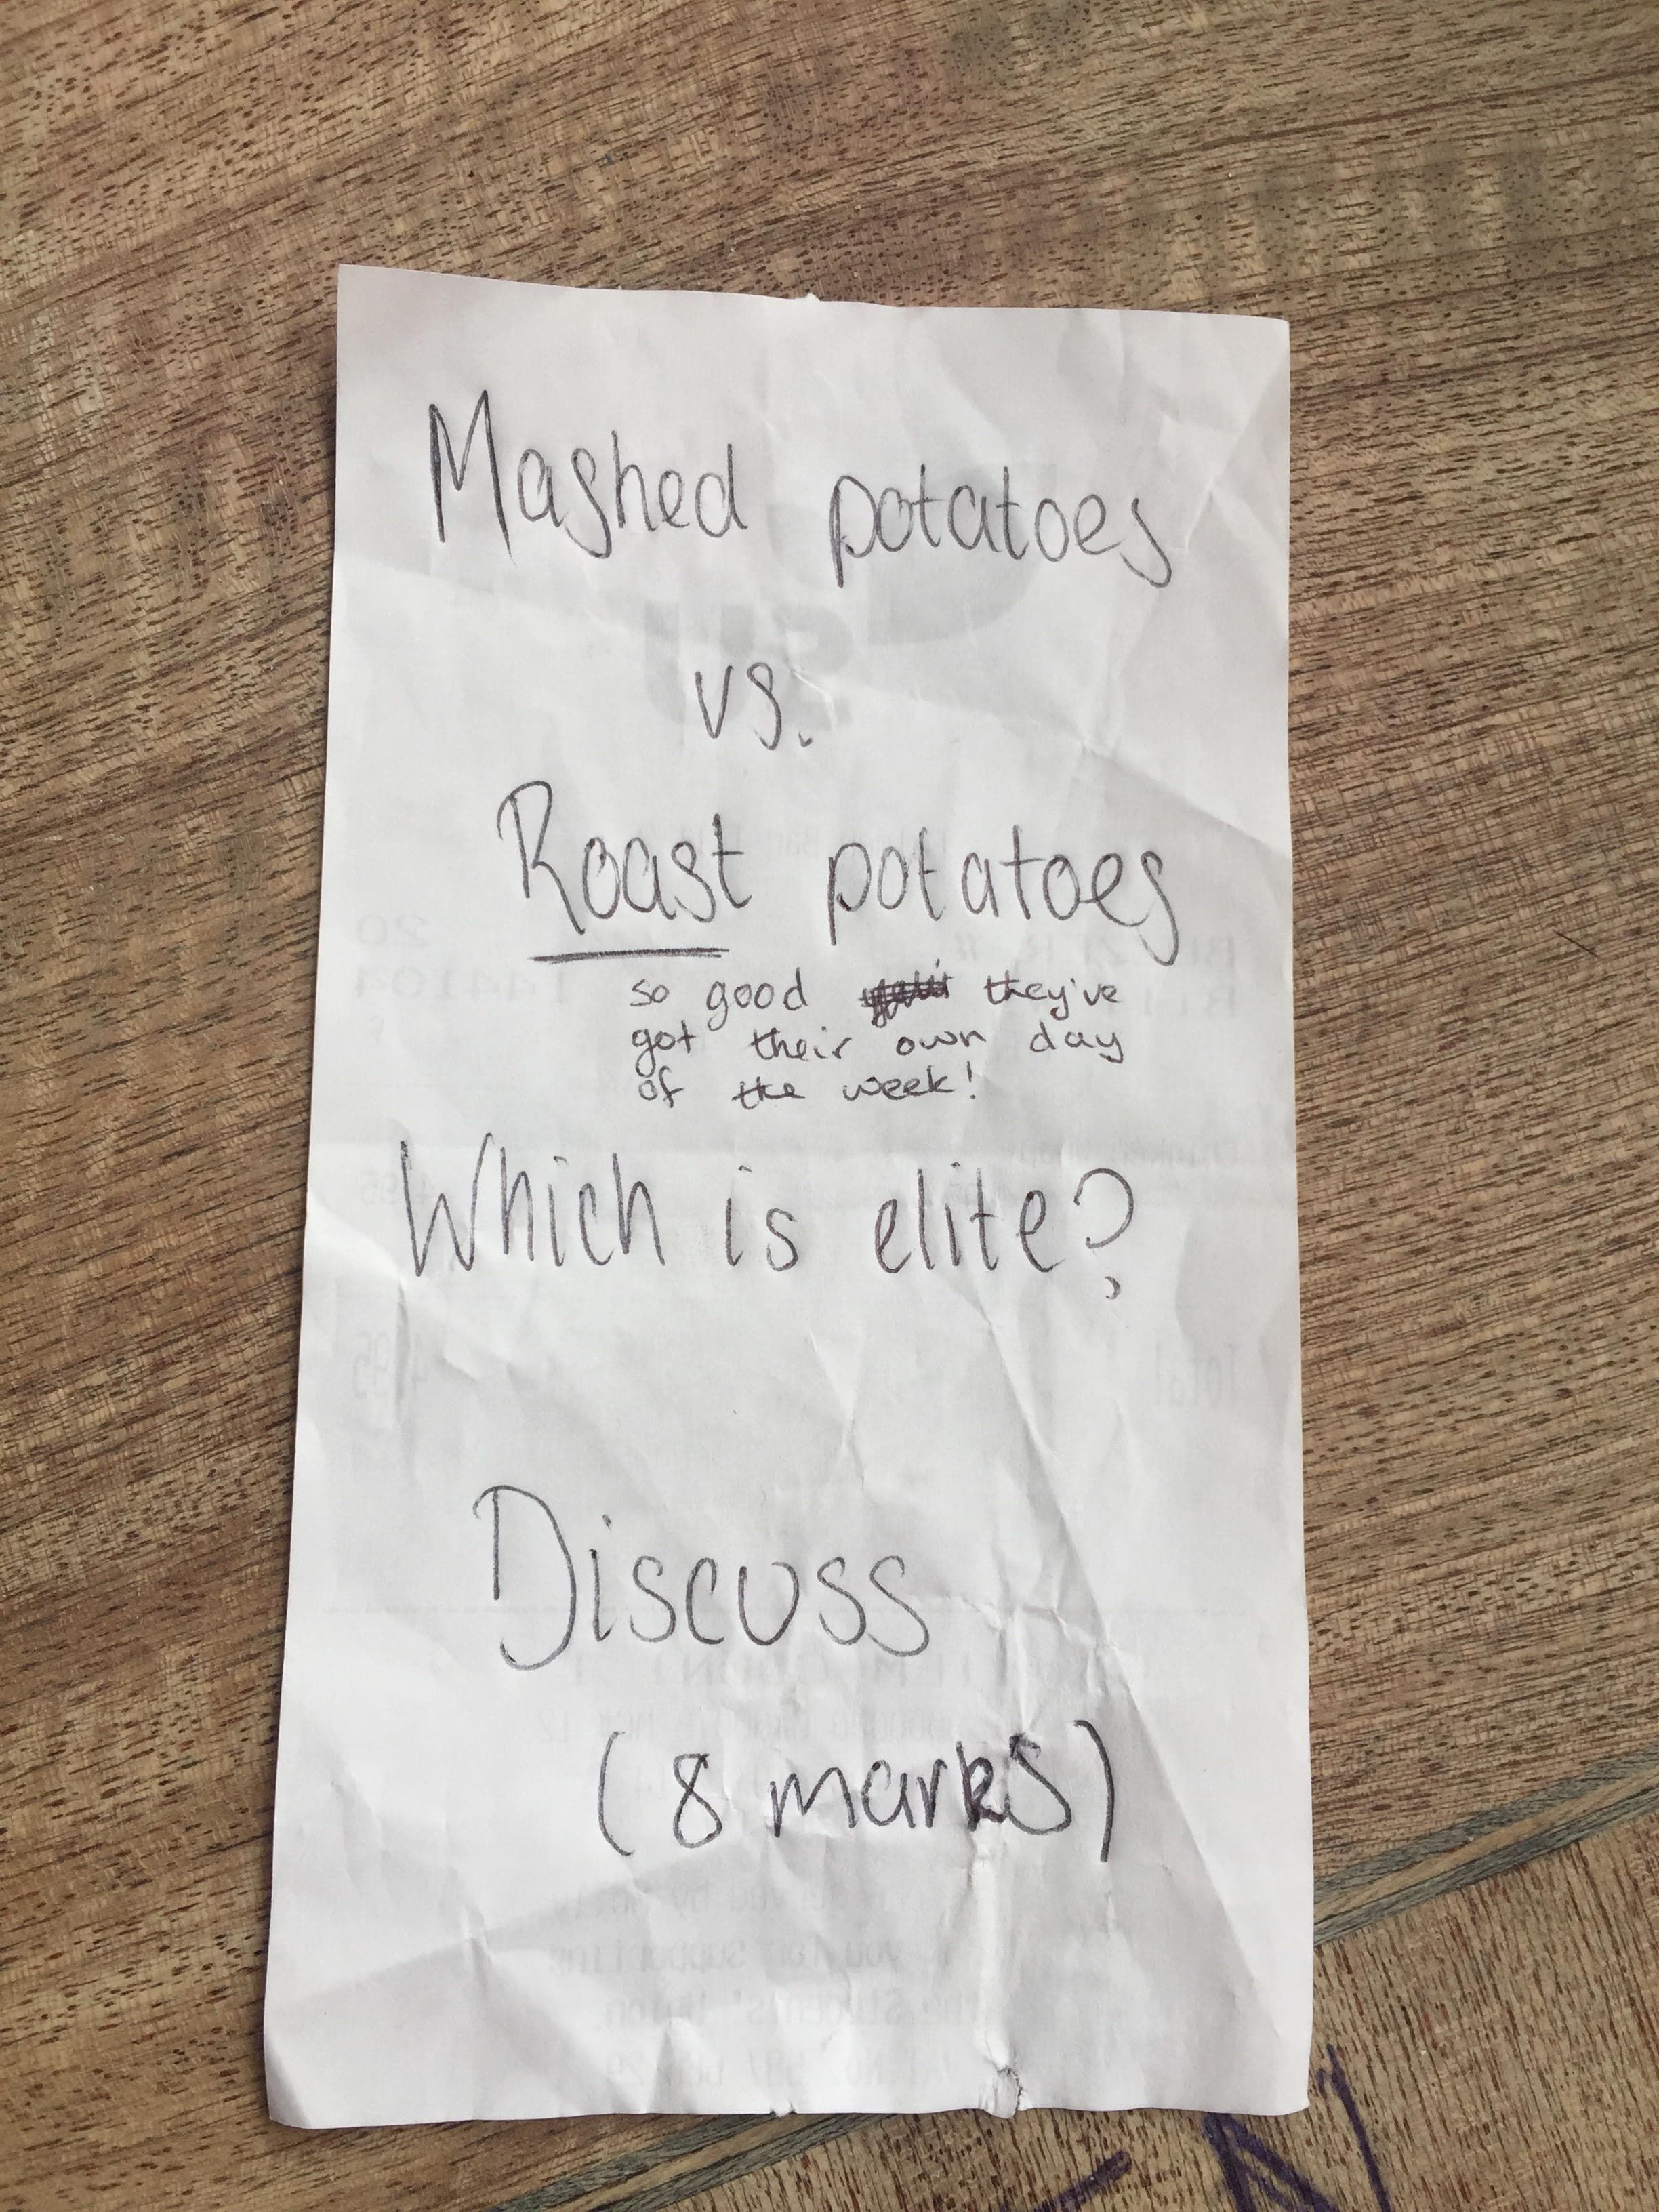 Mashed potatoes
vs.
Roast potatoes
so good they've
got their own day
of the week!
Which is elite?
Discuss
(8 marks)